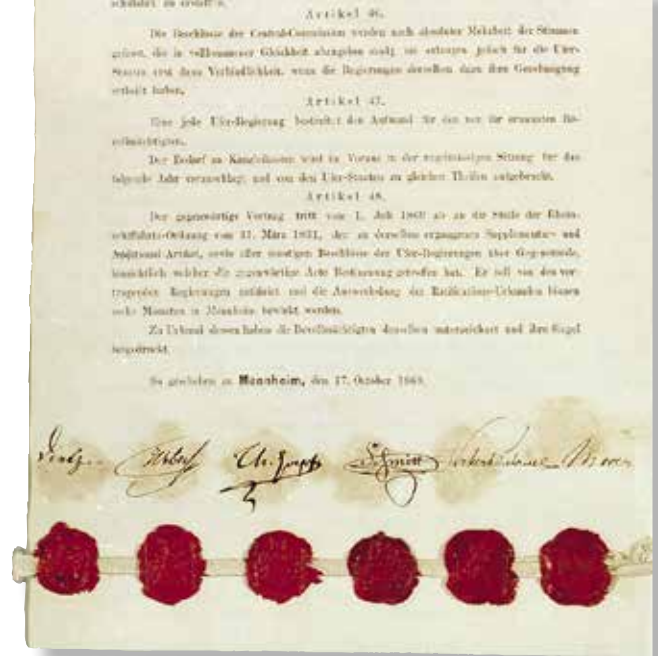 Artikel 46.
Die Beschlüsse der Central-Commission werden nach absoluter Mehrheit der Stimmen
gefasst, die in vollkommener Gleichheit abzugeben sind; sie erlangen jedoch für die Ufer-
Staaten erst dann Verbindlichkeit, wenn die Regierungen derselben dazu ihre Genehmigung
ertheilt haben.
Artikel 47.
Eine jede Ufer-Regierung bestreitet den Aufwand für den von ihr ernannten Be-
vollmächtigten.
Der Bedarf an Kanzleikosten wird im Voraus in der regelmässigen Sitzung für das
folgende Jahr veranschlagt und von den Ufer-Staaten zu gleichen Theilen aufgebracht.
Artikel 48.
Der gegenwärtige Vertrag tritt vom 1. Juli 1869 ab an die Stelle der Rhein-
schifffahrts-Ordnung vom 31. März 1831, der zu derselben ergangenen Supplementar- und
Additional-Artikel, sowie aller sonstigen Beschlüsse der Ufer-Regierungen über Gegenstände,
hinsichtlich welcher die gegenwärtige Acte Bestimmung getroffen hat. Er soll von den ver-
tragenden Regierungen ratificirt und die Auswechslung der Ratifications-Urkunden binnen
sechs Monaten in Mannheim bewirkt werden.
Zu Urkund dessen haben die Bevollmächtigten denselben unterzeichnet und ihre Siegel
beigedrückt.
So geschehen zu Mannheim, den 17. October 1868.
Schmitt